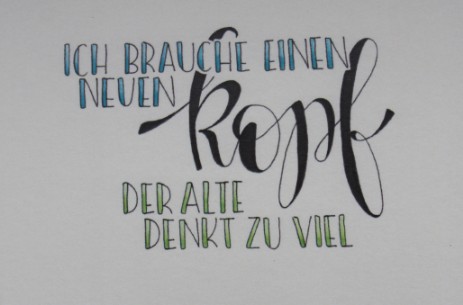 ICH BRAUCHE EINEN
NEUEN
Kopf
DER ALTE
DENKT ZU VIEL